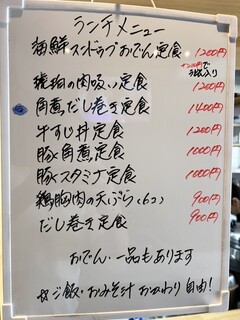 ランチメニュー
海鮮スンドゥブおでん定食 1200円
+200円で
琥珀の肉吸い定食 1200円
角煮だし巻き定食 1400円
牛すじ丼定食 1200円
豚角煮定食 1000円
豚スタミナ定食 1000円
鶏胸肉の天ぷら(6コ) 900円
だし巻き定食 900円
おでん一品もあります
☆ご飯・おみそ汁おかわり自由!